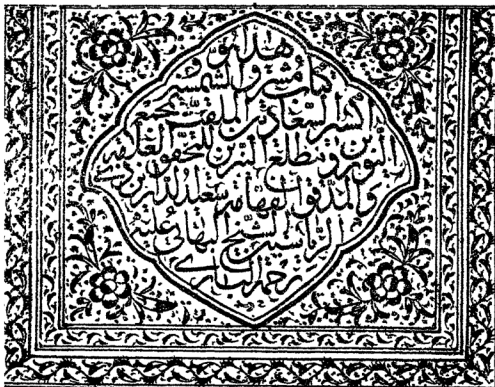 هذا هو
كتاب مشرق الشمسين
و اكسير السعادتين الملقب بمجمع
النورين و مطلع النيرين للمحقق العلامه
و المدقق الفهامه سعد الدارين
الرياستين الشيخ البهائي عليه
رحمة الباري